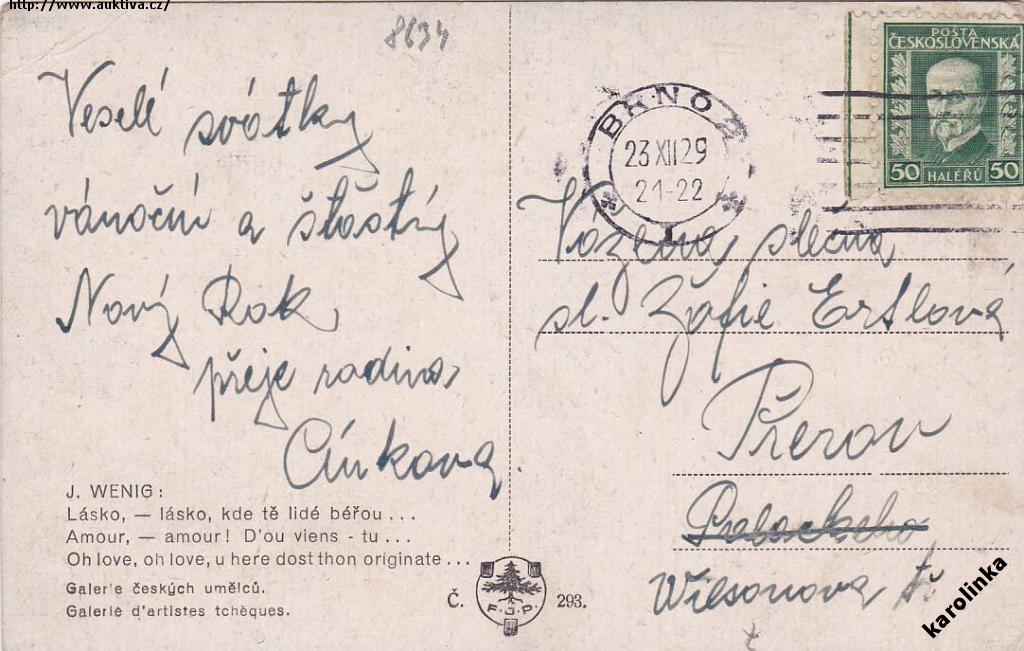 http://www.auktiva.cz/
8634
Veselé svátky
vánoční a šťastný
Nový Rok
přeje rodina
Cínkova
J. WENIG:
Lásko, — lásko, kde tě lidé béřou ...
Amour, — amour! D'ou viens - tu ...
Oh love, oh love, u here dost thon originate ...
Galerie českých umělců.
Galerie d'artistes tchèques.
Č.
F.J.P.
293.
BRNO 2
23 XII 29
21-22
1
POSTA
ČESKOSLOVENSKÁ
50 HALÉŘŮ 50
Vážená slečna
sl. Žofie Ertlová
Přerov
Palackeho
Wilsonova tř.
karolinka